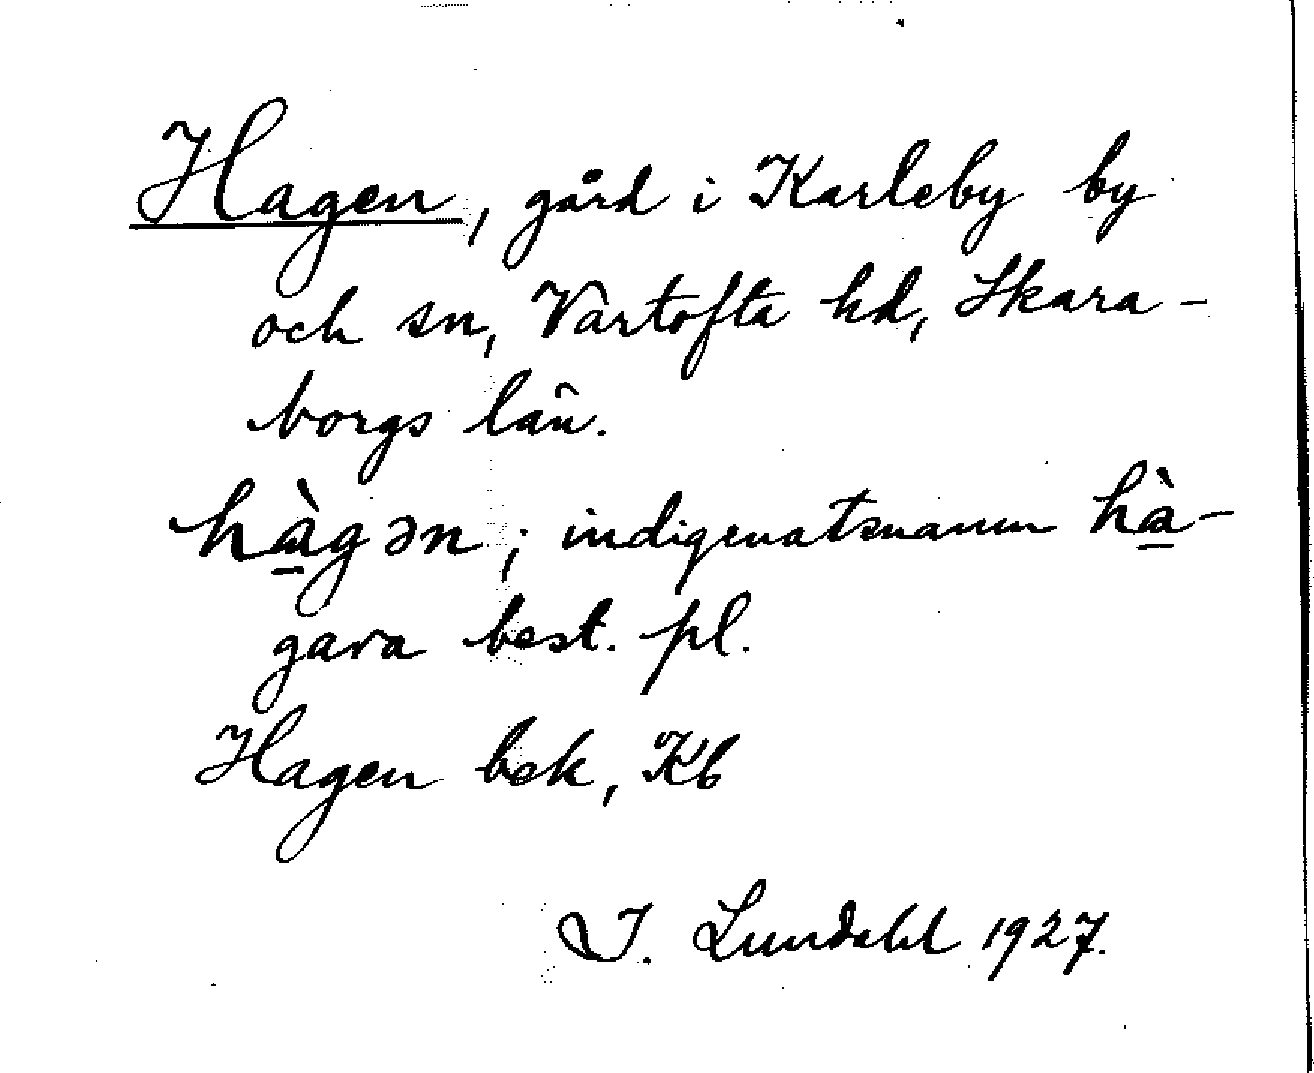 Hagen, gård i Karleby by
och sn, Vartofta hd, Skara-
borgs län.
hàgən; indigenatsnamn hà-
gara best. pl.
Hagen bek, Kb
I. Lundahl 1927.